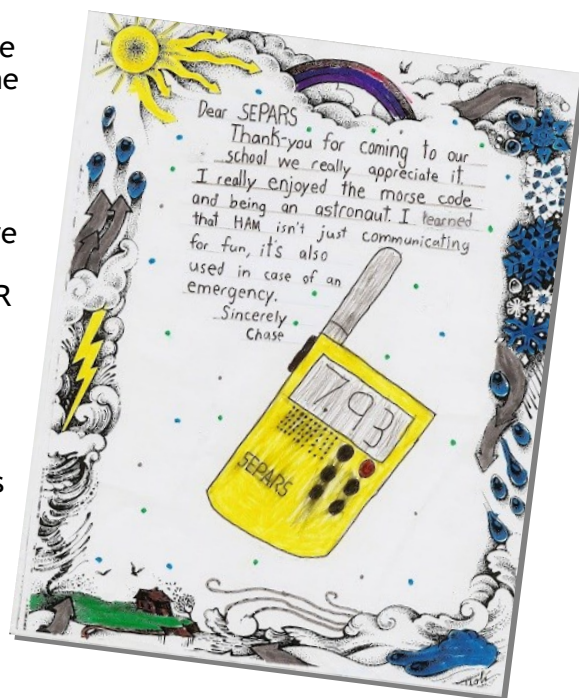 e
ne
Dear SEPARS
Thank-you for coming to our
school we really appreciate it.
I really enjoyed the morse code
and being an astronaut. I learned
that HAM isn't just communicating
for fun, it's also
used in case of an
emergency.
Sincerely
Chase
7.93
SEPARS
ve
R
s